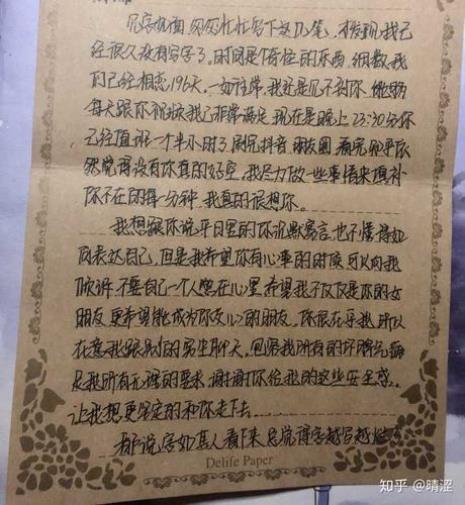 见字如面 匆匆忙忙写下这几笔，才发现我已
经很久没有写字了，时间是个奇怪的东西，细数我
们已经相恋196天，一如往常，我还是见不到你 能够
每天跟你视频我已非常满足 现在是晚上23:30分你
已经值班一个半小时了 刷完抖音 朋友圈 看完似乎依
然觉得没有你真的好空，我尽力做一些事情来填补
你不在的每一分钟，我真的很想你。
我想跟你说平日里的你沉默寡言，也不懂得如
何表达自己，但是我希望你有心事的时候可以向我
倾诉，不要自己一个人憋在心里 希望我不仅仅是你的女
朋友 更希望能成为你交心的朋友，你很在乎我 所以
在意我跟别的男生聊天，包容我所有的坏脾气 满
足我所有无理的要求 谢谢你给我的这些安全感，
让我想更坚定的和你走下去……
都说字如其人 看下来 总觉得字越写越烂了
Delife Paper
知乎 @晴涩